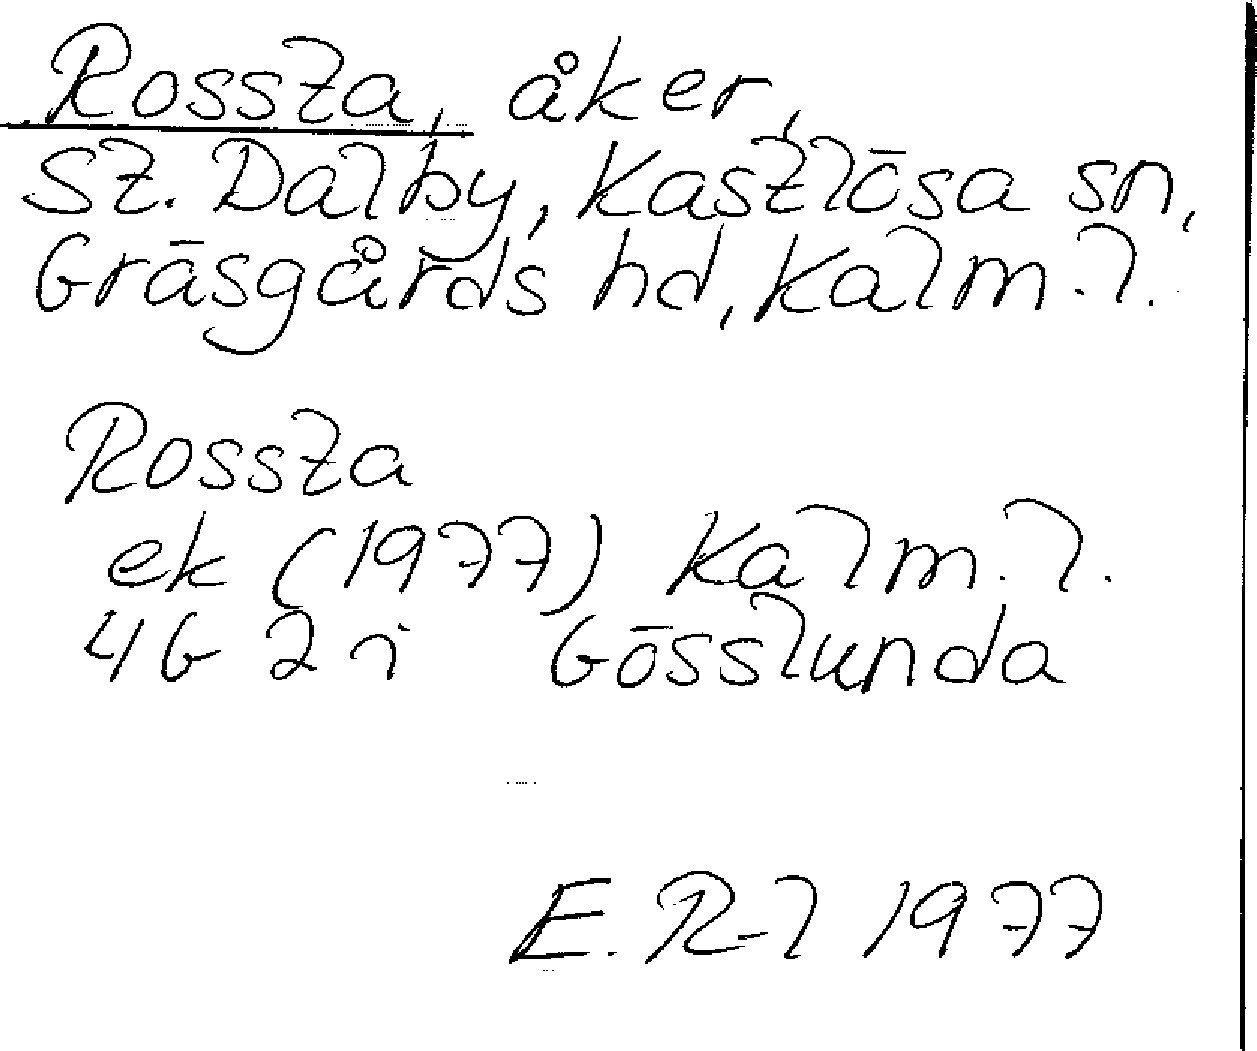 Rossta, åker,
St. Dalby, Kastlösa sn,
Gräsgårds hd, Kalm. l.
Rossta
ek (1977) Kalm. l.
4G 2i Gösslunda
E. R-l 1977